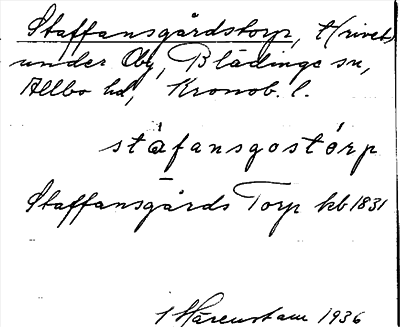 Staffansgårdstorp, t(rivet)
under Oby, Blädinge sn,
Allbo hd, Kronob. l.
stáfansgostórp
Staffansgårds Torp kb 1831
1936